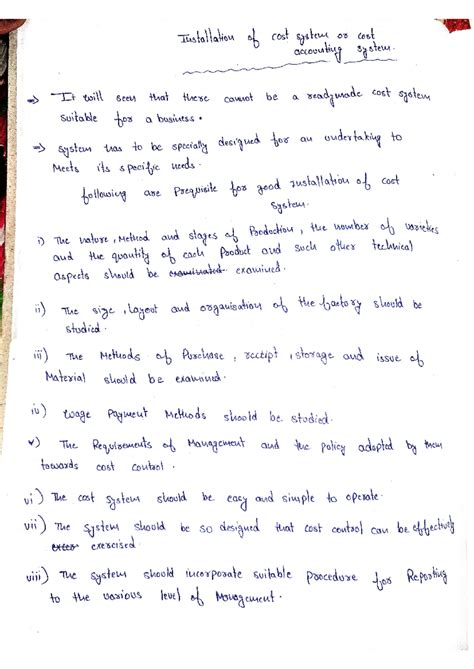 Installation of cost system or cost
accounting system.
=> It will seen that there cannot be a readymade cost system
suitable for a business.
=> system has to be specially designed for an undertaking to
Meets its specific needs.
following are Prequisite for good installation of cost
system.
i) The nature, Method and stages of Production, the number of varieties
and the quantity of each Product and such other technical
aspects should be examinated examined.
ii) The size, layout and organisation of the factory should be
studied.
iii) The Methods of Purchase, receipt, storage and issue of
Material should be examined.
iv) wage Payment Methods should be studied.
v) The Requirements of Management and the policy adopted by them
towards cost control.
vi) The cost system should be easy and simple to operate.
vii) The system should be so designed that cost control can be effectively
exerised.
viii) The system should incorporate suitable Procedure for Reporting
to the various level of Management.